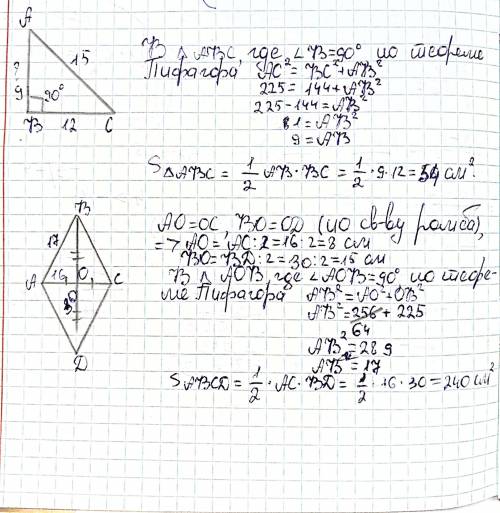 A
15
?
9
90°
B 12 C
В △ ABC, где ∠B=90° по теореме
Пифагора AC²=BC²+AB²
225 = 144+AB²
225-144=AB²
81=AB²
9=AB
S△ABC = 1/2 AB·BC = 1/2 ·9·12=54 см².
B
17
A 16 O C
30
D
AO=OC, BO=OD (по св-ву ромба),
=> AO=AC:2=16:2=8 см
BO=BD:2=30:2=15 см
В △ AOB, где ∠AOB=90° по теоре-
ме Пифагора AB²=AO²+OB²
AB²=256+225
64
AB²=289
AB=17
S ABCD = 1/2 · AC·BD = 1/2 ·16·30=240 см²